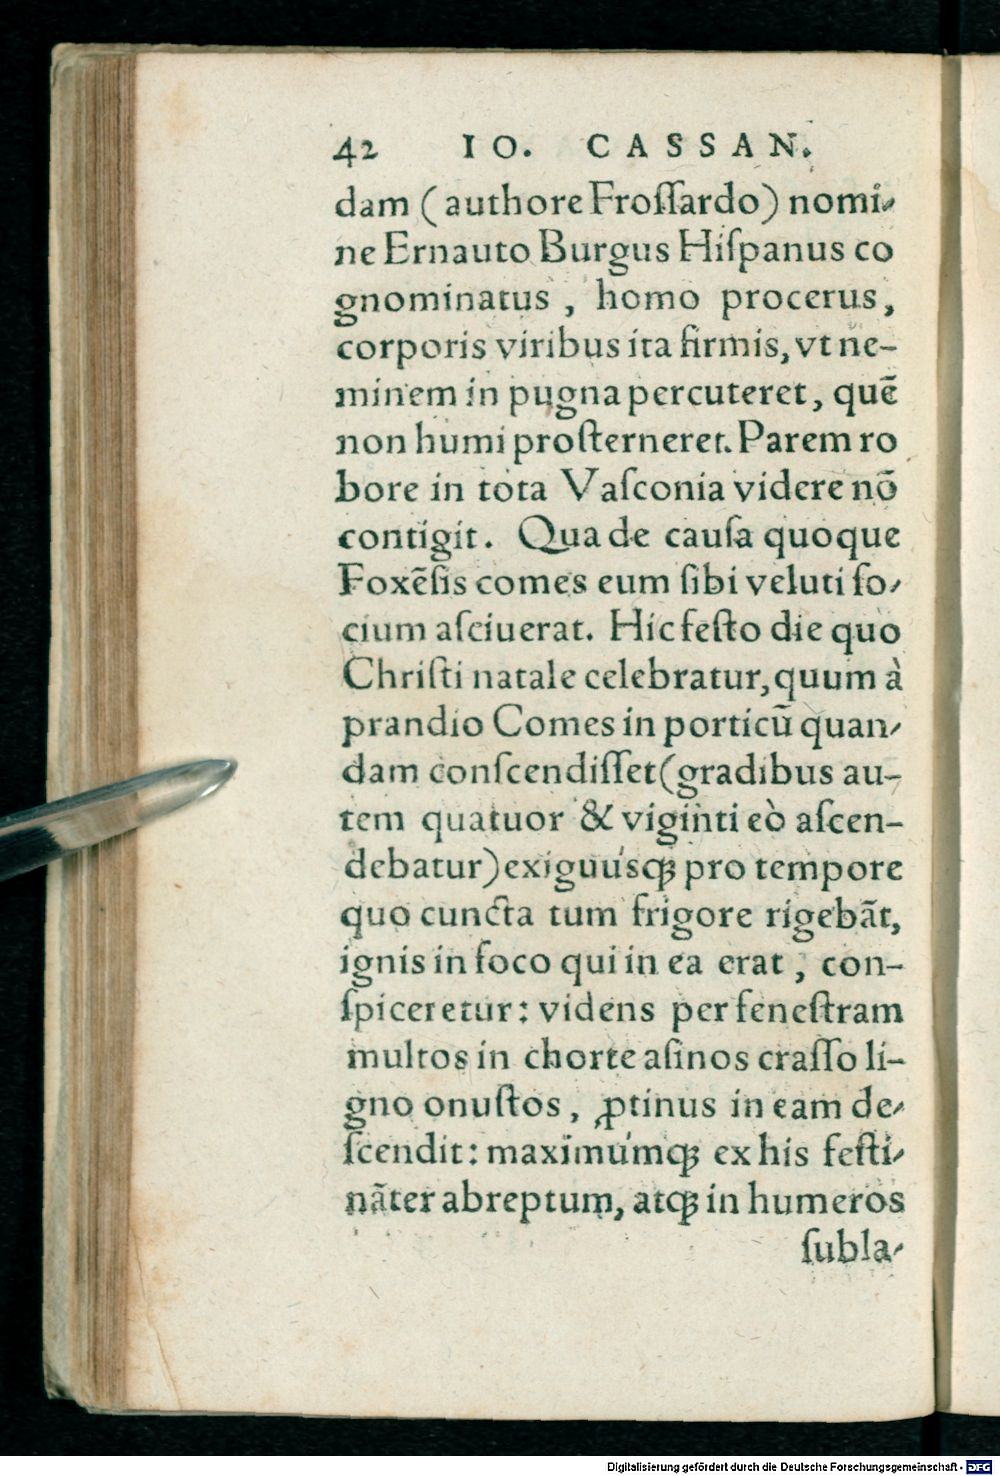 42 IO. CASSAN.
dam (authore Froſſardo) nomi-
ne Ernauto Burgus Hiſpanus co
gnominatus , homo procerus,
corporis viribus ita firmis, vt ne-
minem in pugna percuteret, quē
non humi proſterneret. Parem ro
bore in tota Vaſconia videre nō
contigit. Qua de cauſa quoque
Foxēſis comes eum ſibi veluti ſo-
cium aſciuerat. Hic feſto die quo
Chriſti natale celebratur, quum à
prandio Comes in porticū quan-
dam conſcendiſſet (gradibus au-
tem quatuor & viginti eò aſcen-
debatur) exiguúsqꝫ pro tempore
quo cuncta tum frigore rigebāt,
ignis in foco qui in ea erat , con-
ſpiceretur: videns per feneſtram
multos in chorte aſinos craſſo li-
gno onuſtos , ꝓtinus in eam de-
ſcendit: maximúmqꝫ ex his feſti-
nāter abreptum, atqꝫ in humeros
ſubla-
Digitalisierung gefördert durch die Deutsche Forschungsgemeinschaft - DFG